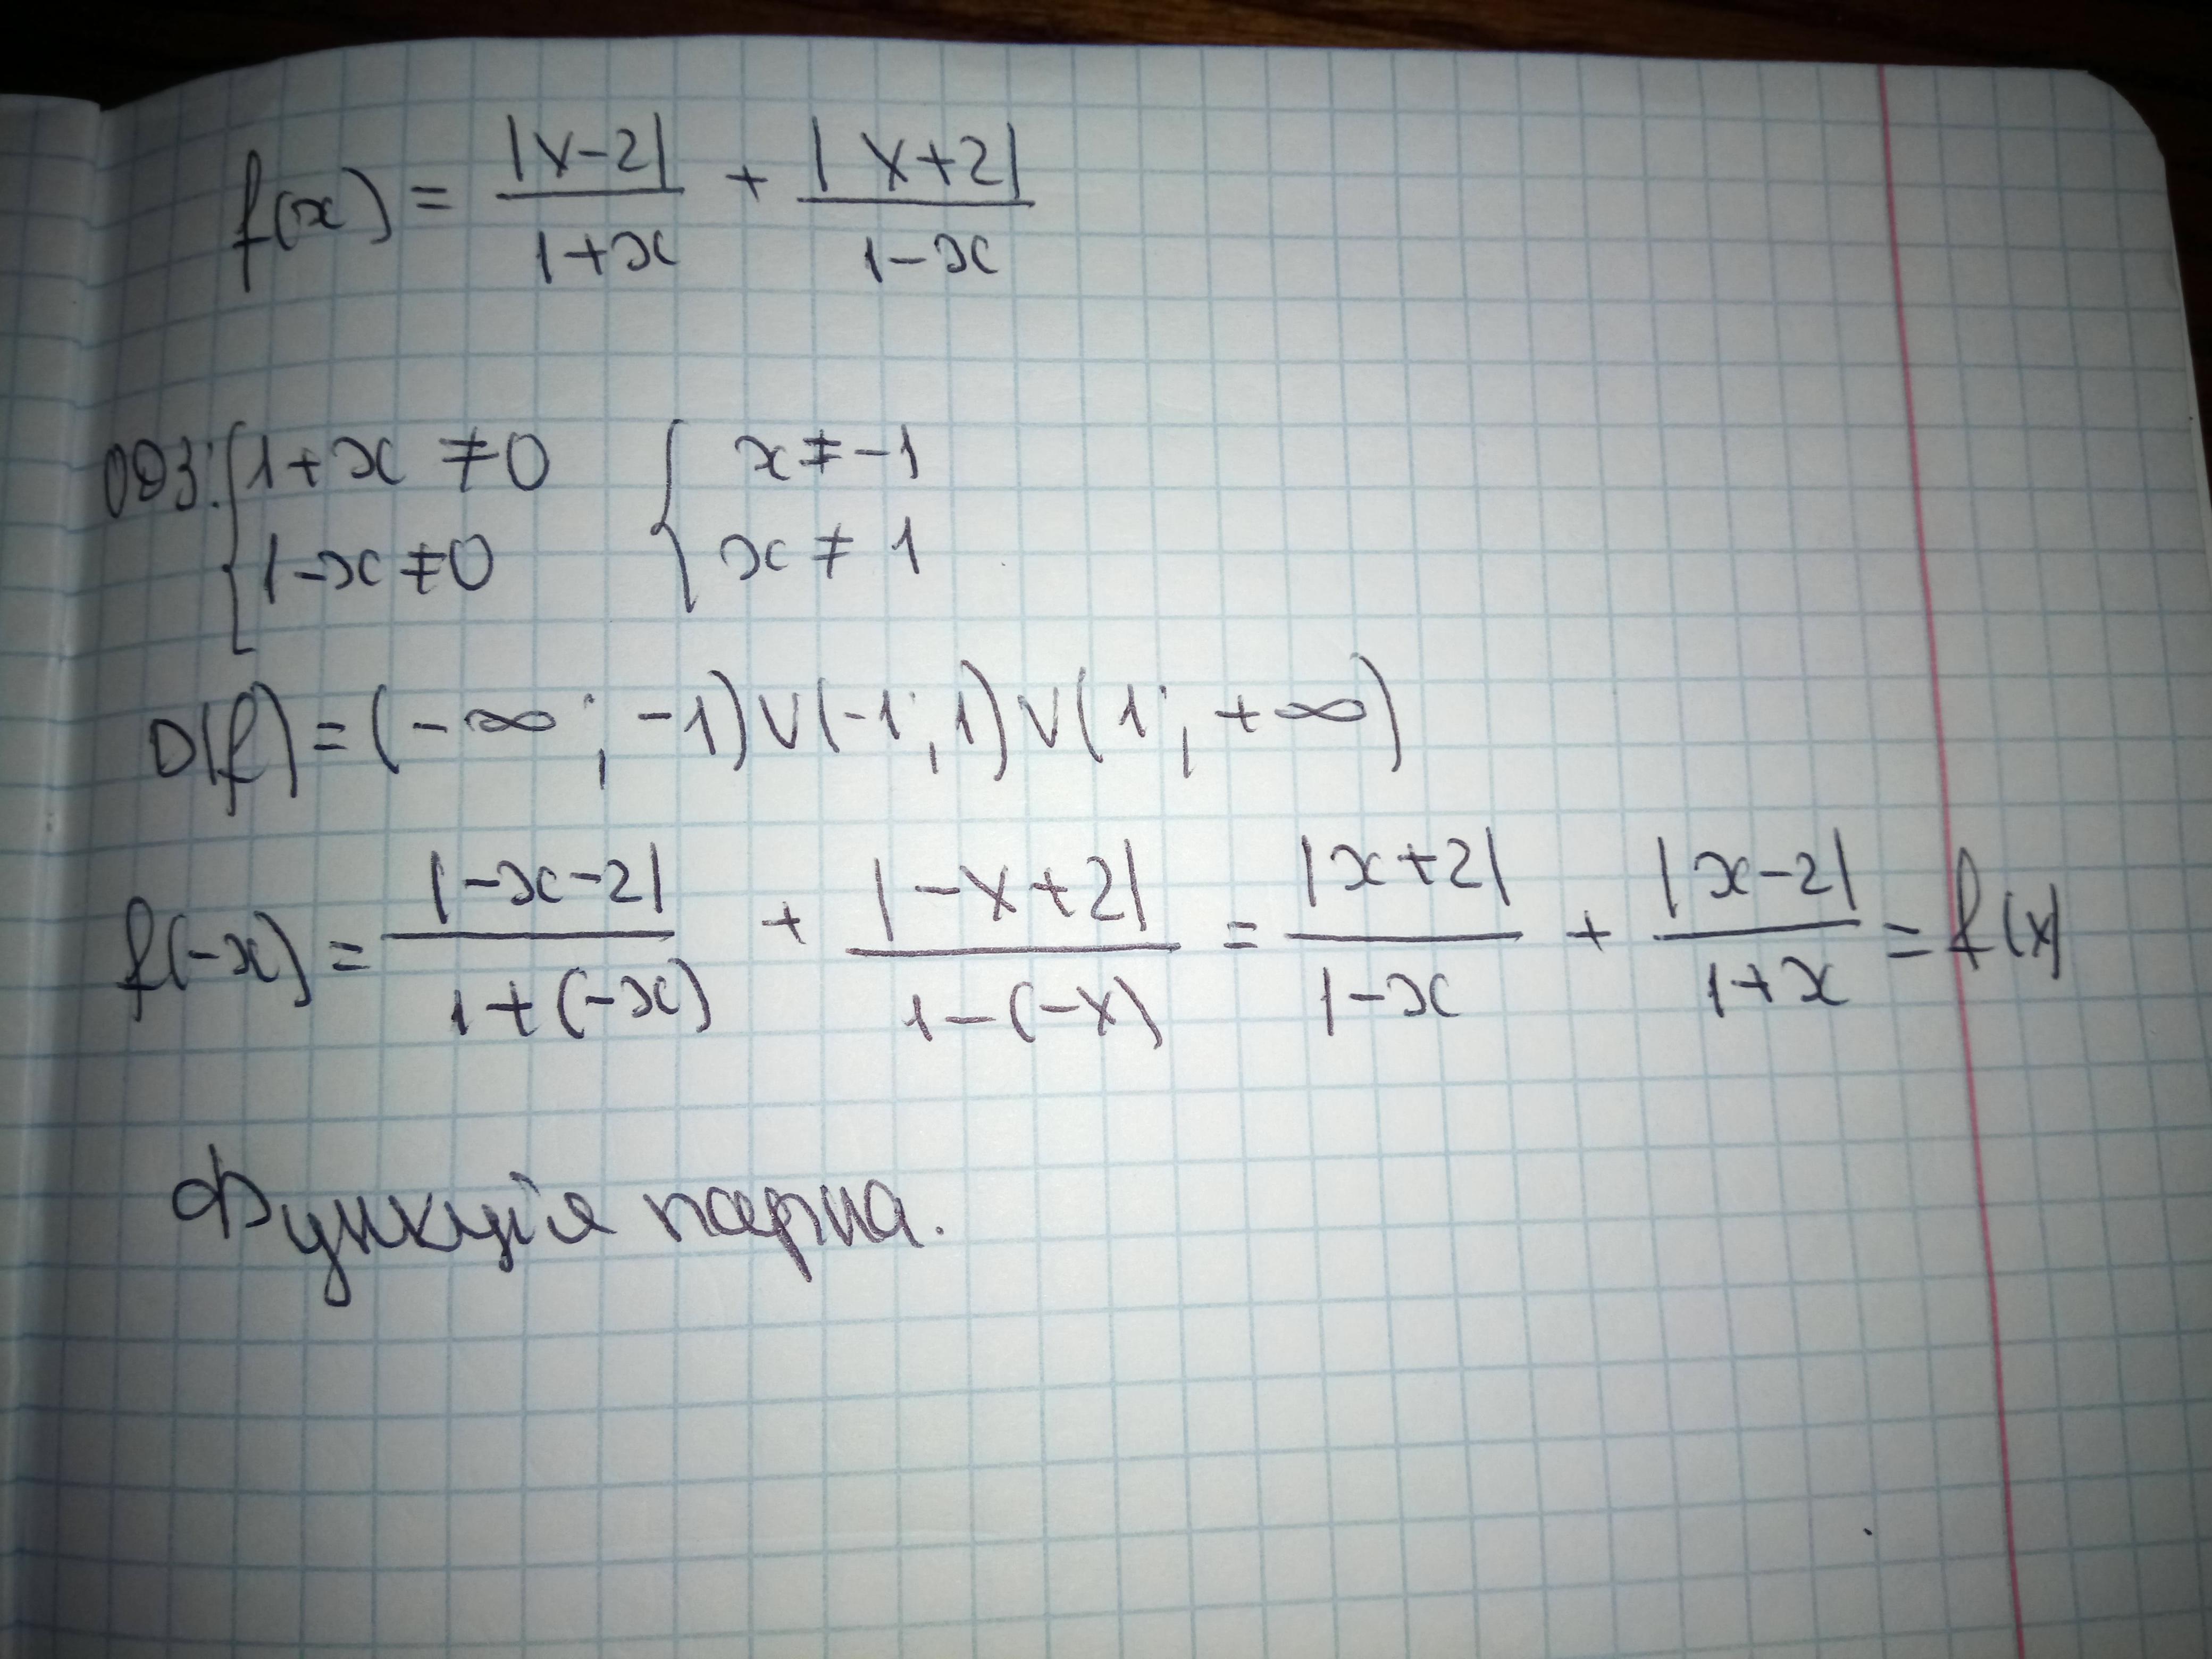 f(x) = |x-2| / 1+x + |x+2| / 1-x
ОДЗ: { 1+x ≠ 0 { x ≠ -1
{ 1-x ≠ 0 { x ≠ 1
D(f) = (-∞; -1) ∪ (-1; 1) ∪ (1; +∞)
f(-x) = |-x-2| / 1+(-x) + |-x+2| / 1-(-x) = |x+2| / 1-x + |x-2| / 1+x = f(x)
Функція парна.